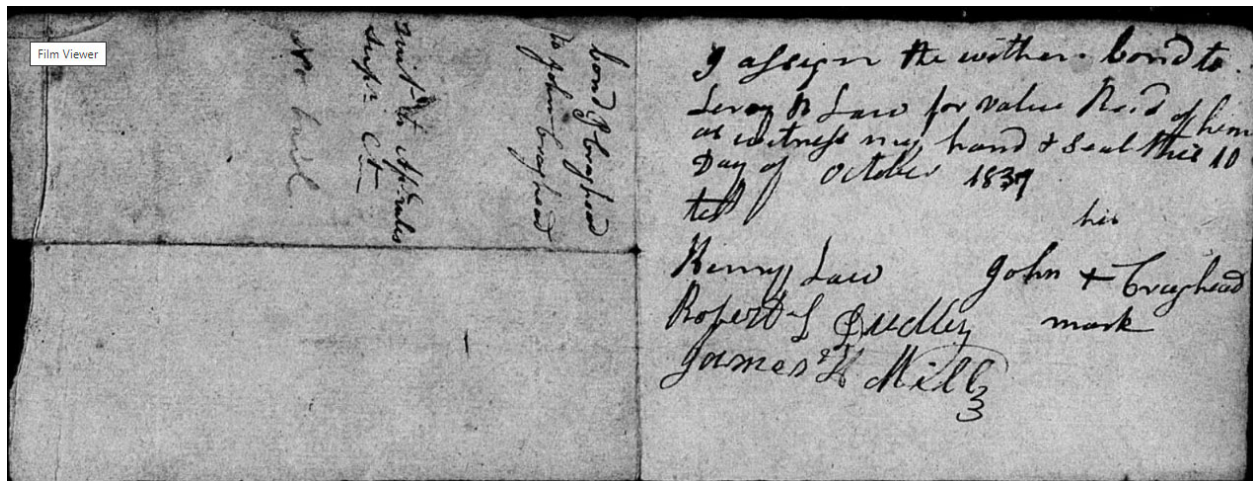 Film Viewer
bond J Craghead
to John Craghead
Writ to Apl. rules
Supr. Ct
I assign the within bond to
Leroy B Law for value Recd of him
as witness my hand & seal this 10
Day of October 1837
test
his
Henry Law John + Craghead
mark
Robert L Dudley
James H Mills